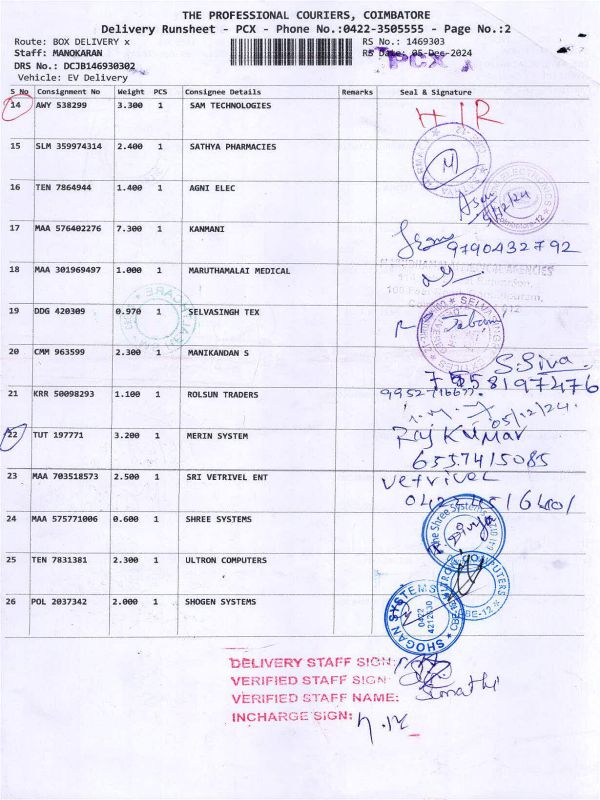 THE PROFESSIONAL COURIERS, COIMBATORE
Delivery Runsheet - PCX - Phone No.:0422-3505555 - Page No.:2
Route: BOX DELIVERY x RS No.: 1469303
Staff: MANOKARAN RS Date: 05-Dec-2024
PCX
DRS No.: DCJB146930302
Vehicle: EV Delivery
S No Consignment No Weight PCS Consignee Details Remarks Seal & Signature
14 AWY 538299 3.300 1 SAM TECHNOLOGIES
HIR
15 SLM 359974314 2.400 1 SATHYA PHARMACIES
16 TEN 7864944 1.400 1 AGNI ELEC
17 MAA 576402276 7.300 1 KANMANI
9790432792
18 MAA 301969497 1.000 1 MARUTHAMALAI MEDICAL
19 DDG 420309 0.970 1 SELVASINGH TEX
20 CMM 963599 2.300 1 MANIKANDAN S
S.Siva
21 KRR 50098293 1.100 1 ROLSUN TRADERS
05/12/24
22 TUT 197771 3.200 1 MERIN SYSTEM
Raj Kumar
6557415085
23 MAA 703518573 2.500 1 SRI VETRIVEL ENT
Vetrivel
24 MAA 575771006 0.600 1 SHREE SYSTEMS
The Shree Systems
25 TEN 7831381 2.300 1 ULTRON COMPUTERS
26 POL 2037342 2.000 1 SHOGEN SYSTEMS
SHOGAN SYSTEMS
0422
4212030
CBE-12
DELIVERY STAFF SIGN:
VERIFIED STAFF SIGN:
VERIFIED STAFF NAME:
INCHARGE SIGN: